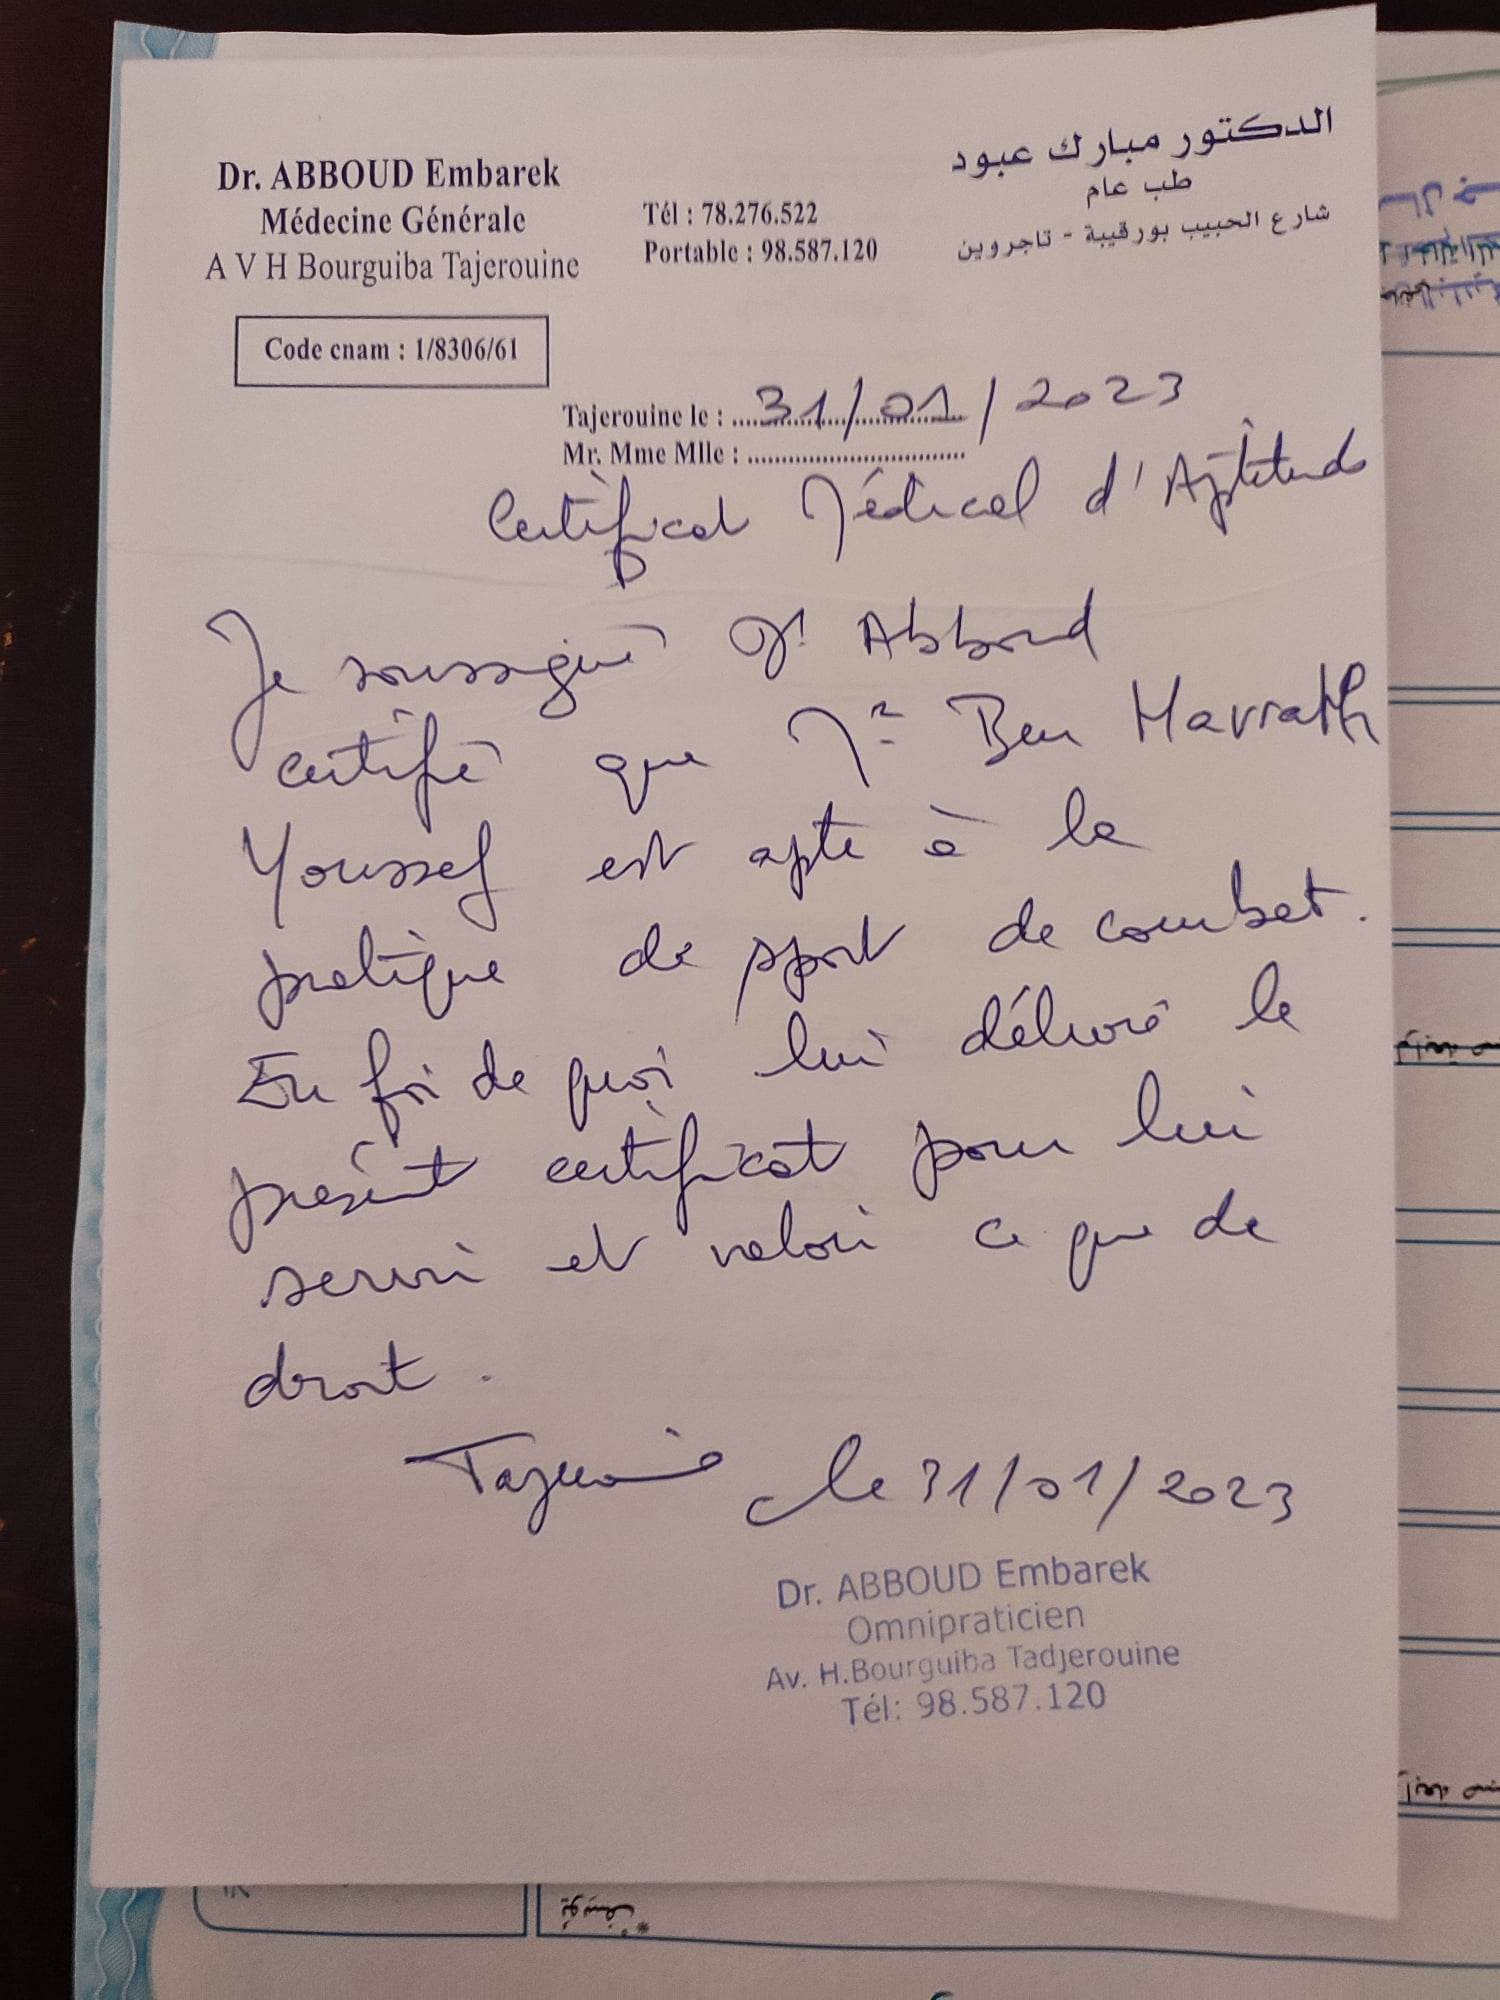 Dr. ABBOUD Embarek
Médecine Générale
A V H Bourguiba Tajerouine
Tél : 78.276.522
Portable : 98.587.120
الدكتور مبارك عبود
طب عام
شارع الحبيب بورقيبة - تاجروين
Code cnam : 1/8306/61
Tajerouine le : 31/01/2023
Mr. Mme Mlle :
Certificat Médical d'Aptitude
Je soussigné Dr Abboud
certifie que Mr Ben Marrath
Youssef est apte à la
pratique de sport de combat.
En foi de quoi lui délivré le
présent certificat pour lui
servir et valoir ce que de
droit.
Tajerouine le 31/01/2023
Dr. ABBOUD Embarek
Omnipraticien
Av. H.Bourguiba Tadjerouine
Tél: 98.587.120